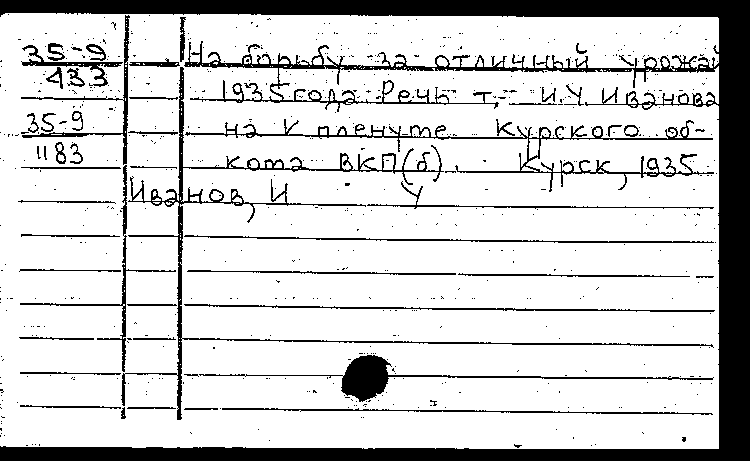 35-9
433
35-9
1183
На борьбу за отличный урожай
1935 года. Речь т. И.У. Иванова
на V пленуме Курского об-
кома ВКП(б). Курск, 1935
Иванов, И У